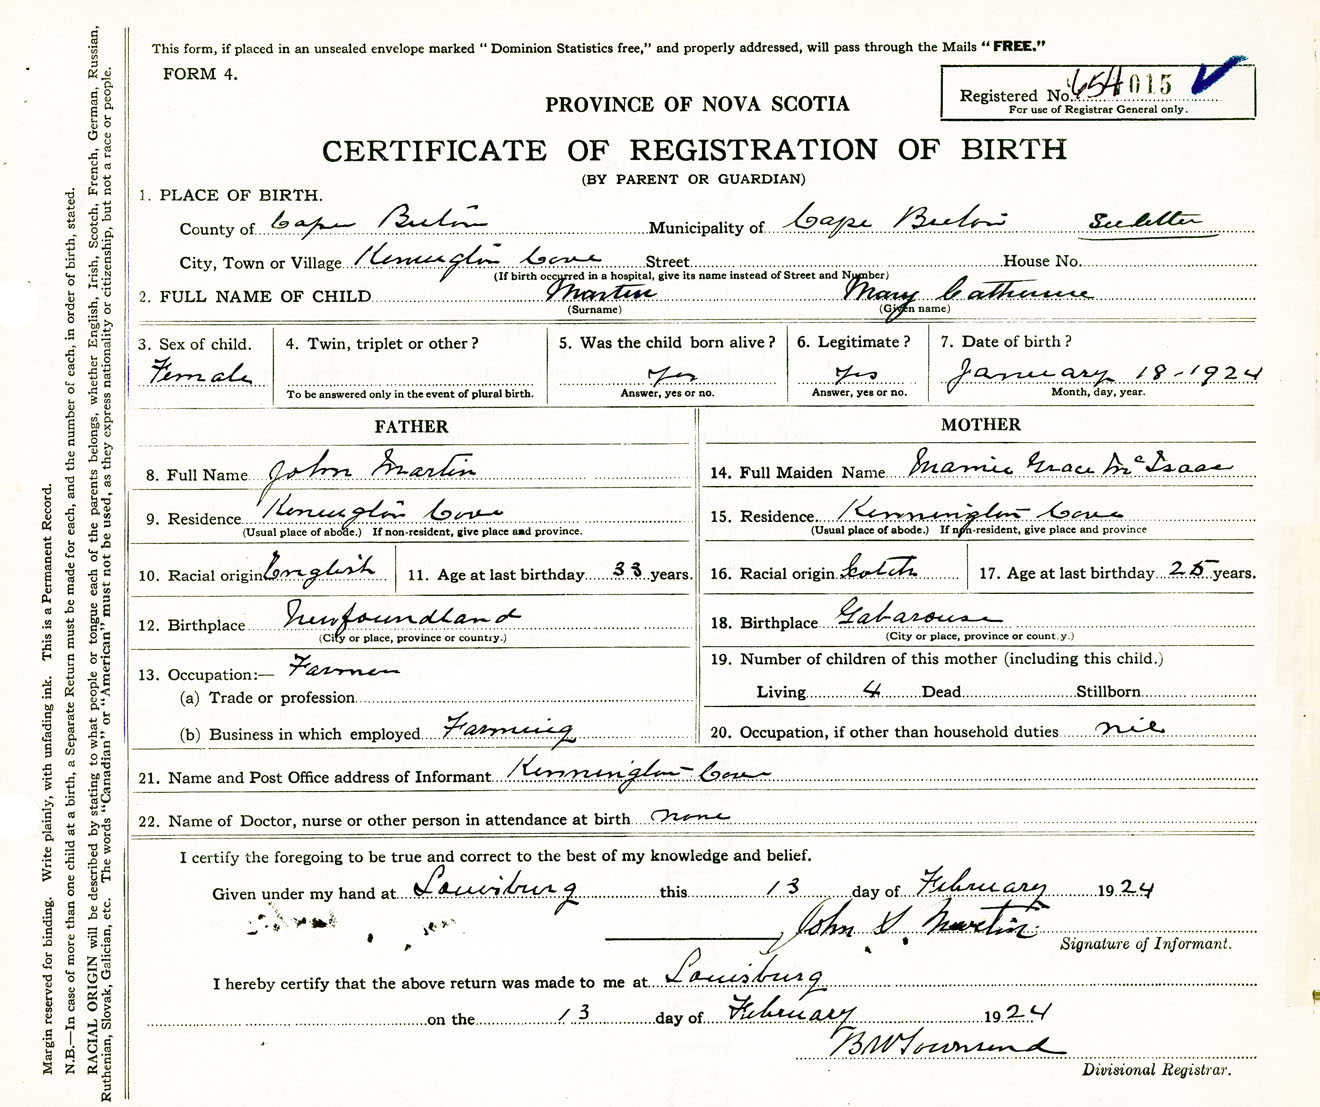 This form, if placed in an unsealed envelope marked " Dominion Statistics free," and properly addressed, will pass through the Mails " FREE."
FORM 4.
Registered No. 654 015
For use of Registrar General only.
PROVINCE OF NOVA SCOTIA
CERTIFICATE OF REGISTRATION OF BIRTH
(BY PARENT OR GUARDIAN)
1. PLACE OF BIRTH.
County of Cape Breton Municipality of Cape Breton See letter
City, Town or Village Kennington Cove Street House No.
(If birth occurred in a hospital, give its name instead of Street and Number)
2. FULL NAME OF CHILD Martin Mary Catherine
(Surname) (Given name)
3. Sex of child. 4. Twin, triplet or other ? 5. Was the child born alive ? 6. Legitimate ? 7. Date of birth ?
Female yes yes January 18-1924
To be answered only in the event of plural birth. Answer, yes or no. Answer, yes or no. Month, day, year.
FATHER MOTHER
8. Full Name John Martin 14. Full Maiden Name Mamie Grace McIsaac
9. Residence Kennington Cove 15. Residence Kennington Cove
(Usual place of abode.) If non-resident, give place and province. (Usual place of abode.) If non-resident, give place and province
10. Racial origin English 11. Age at last birthday 33 years. 16. Racial origin Scotch 17. Age at last birthday 25 years.
12. Birthplace Newfoundland 18. Birthplace Gabarouse
(City or place, province or country.) (City or place, province or count.y.)
13. Occupation:— Farmer 19. Number of children of this mother (including this child.)
(a) Trade or profession Living 4 Dead Stillborn
(b) Business in which employed Farming 20. Occupation, if other than household duties nil
21. Name and Post Office address of Informant Kennington Cove
22. Name of Doctor, nurse or other person in attendance at birth none
I certify the foregoing to be true and correct to the best of my knowledge and belief.
Given under my hand at Louisburg this 13 day of February 1924
John S. Martin
Signature of Informant.
I hereby certify that the above return was made to me at Louisburg
on the 13 day of February 1924
B W Townsend
Divisional Registrar.
Margin reserved for binding. Write plainly, with unfading ink. This is a Permanent Record.
N.B.—In case of more than one child at a birth, a Separate Return must be made for each, and the number of each, in order of birth, stated.
RACIAL ORIGIN will be described by stating to what people or tongue each of the parents belongs, whether English, Irish, Scotch, French, German, Russian,
Ruthenian, Slovak, Galician, etc. The words "Canadian" or "American" must not be used, as they express nationality or citizenship, but not a race or people.